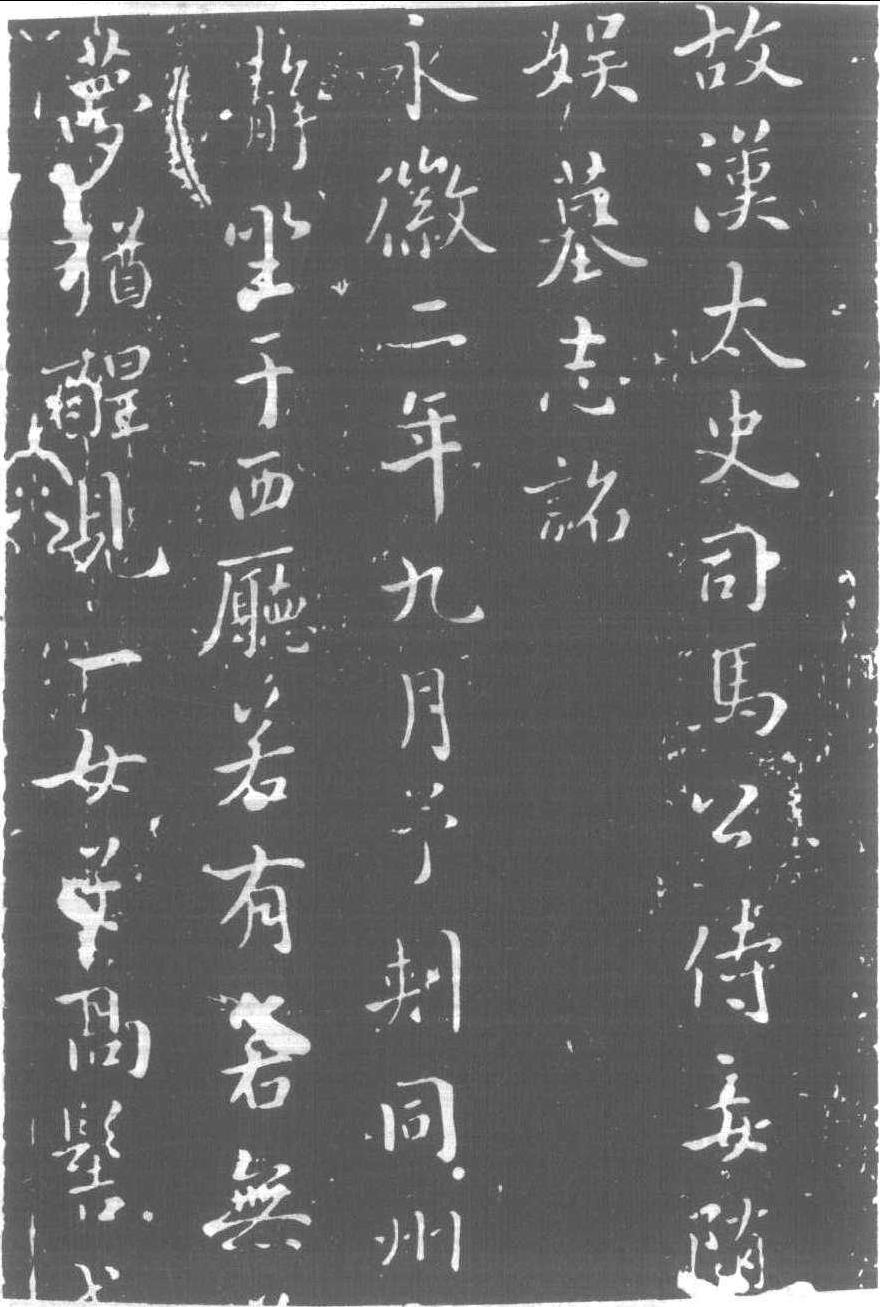 故漢太史司馬公侍妾隨
娱墓志銘
永徽二年九月予刺同州
靜坐于西廳若有若無
夢猶醒見一女子高髻